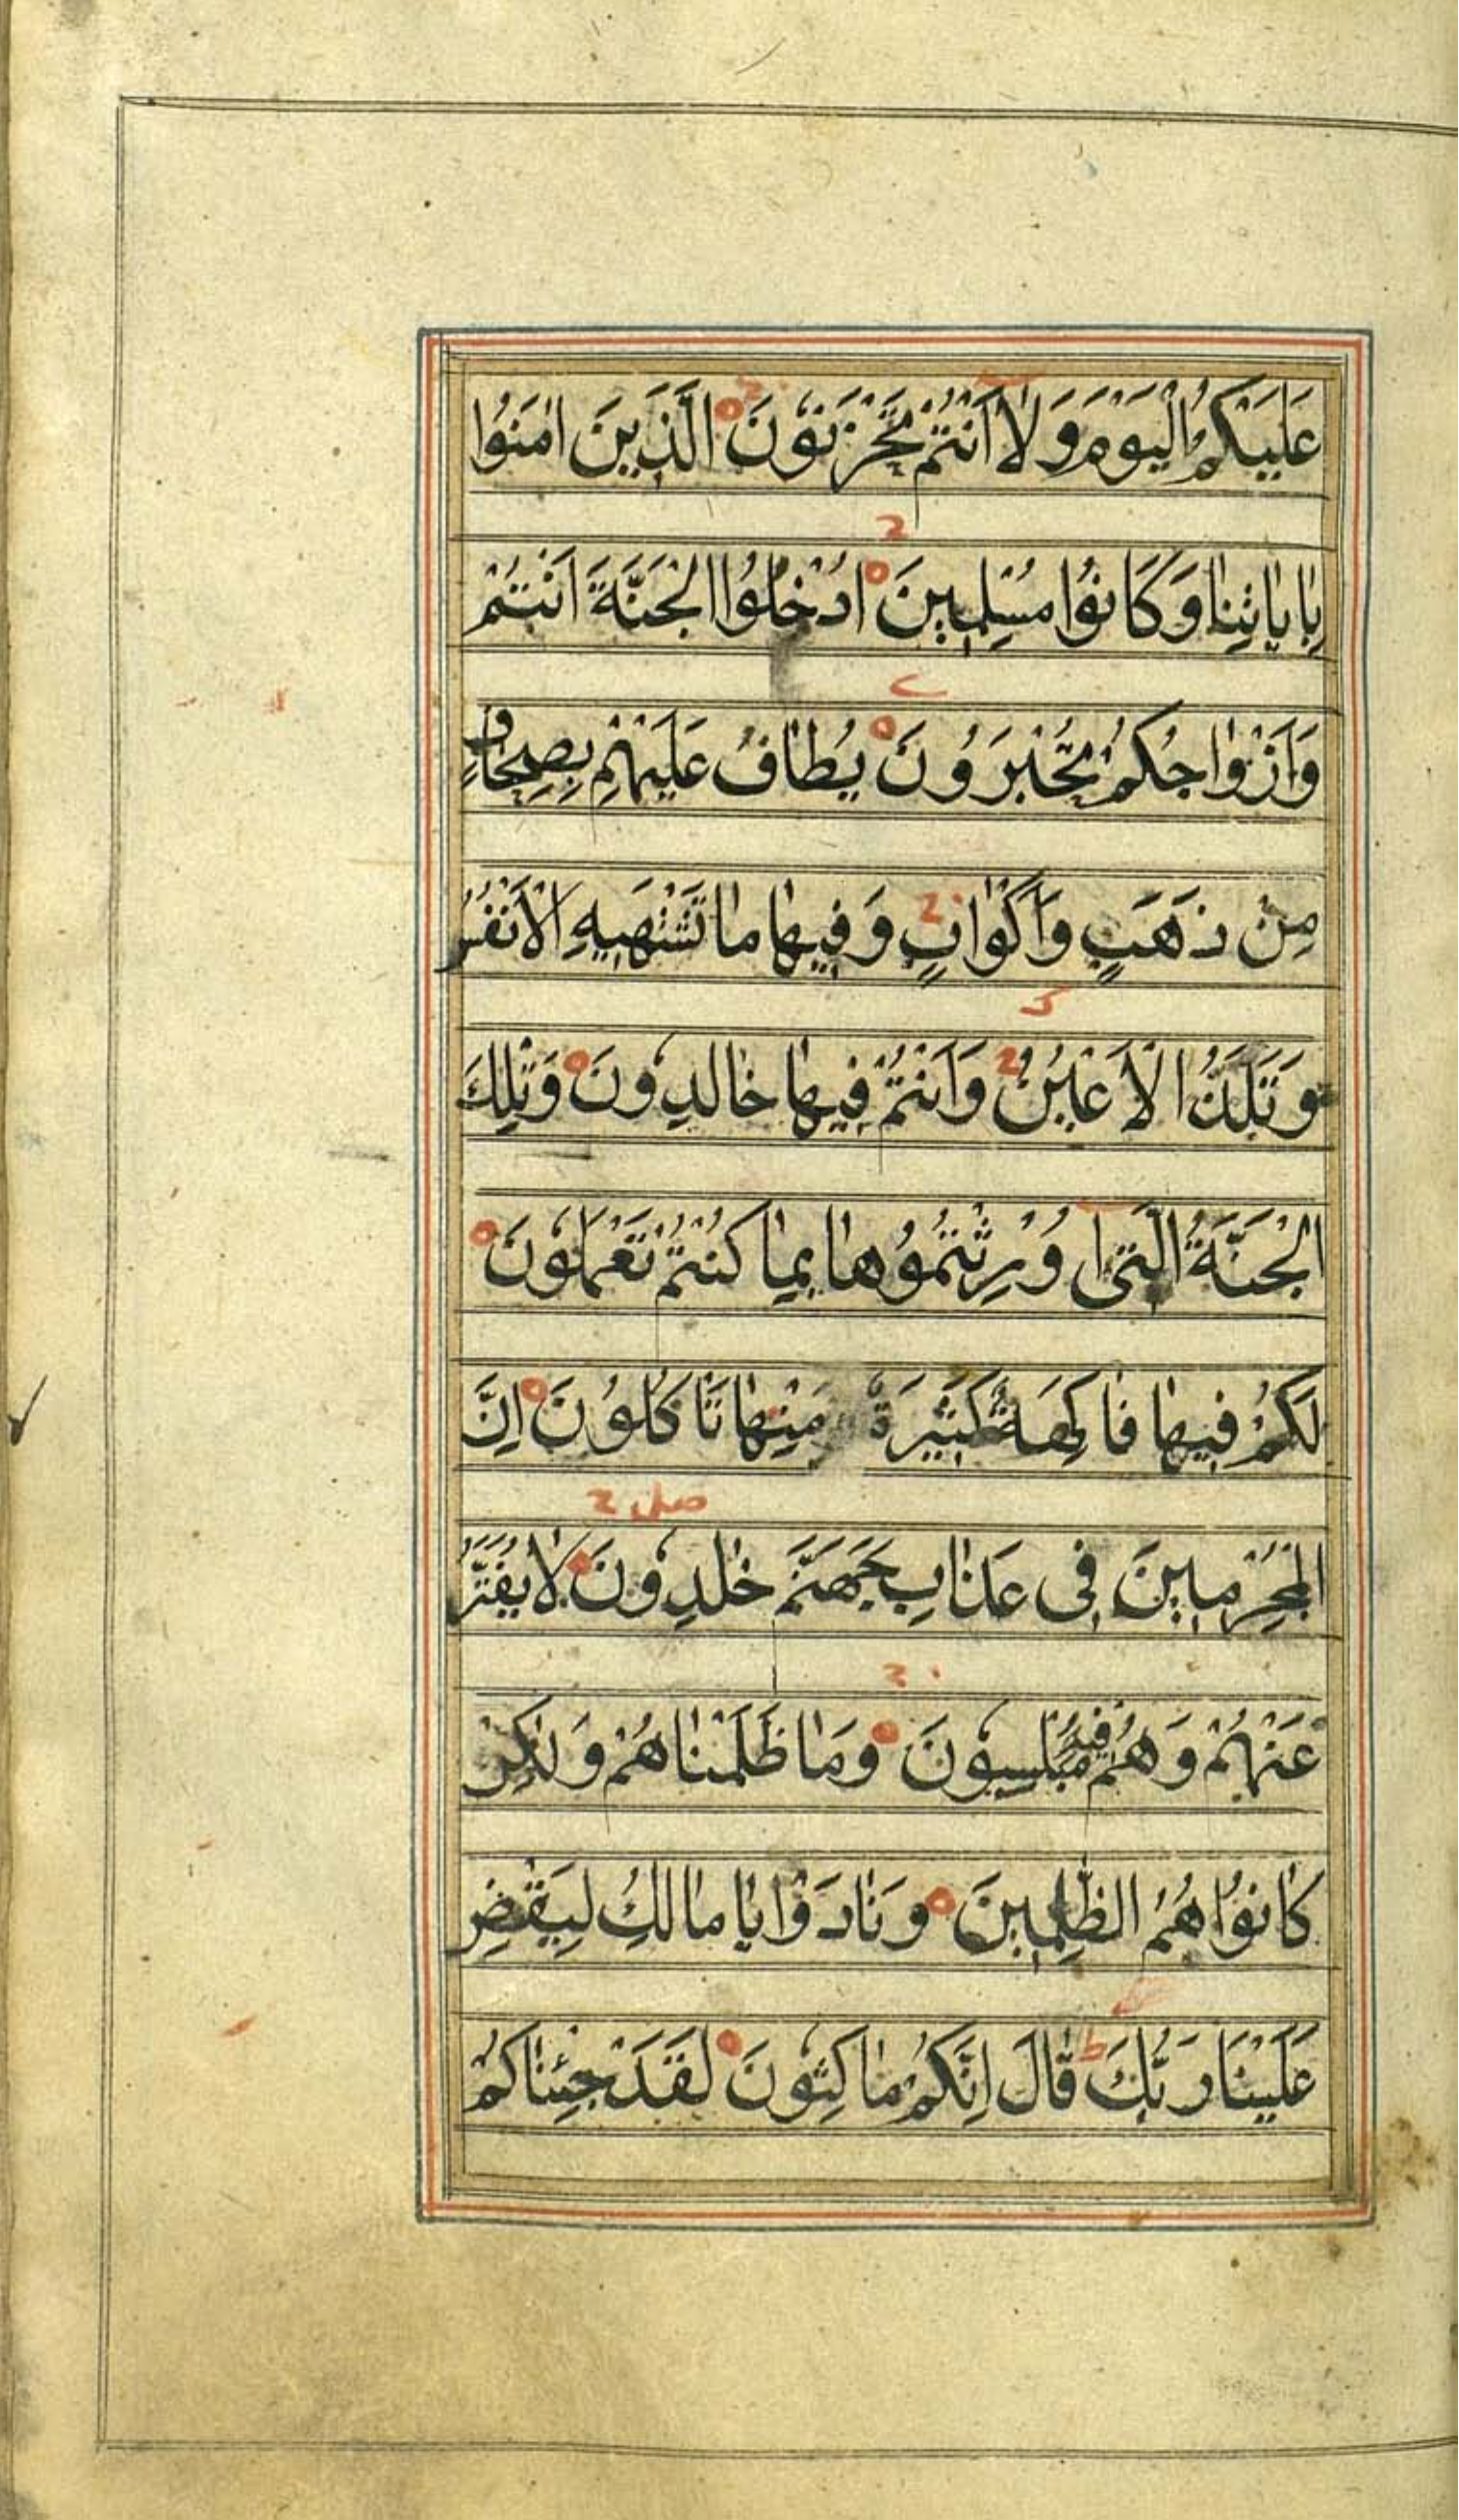 عَلَيْكُمُ الْيَوْمَ وَلَا أَنْتُمْ تَحْزَنُونَ الَّذِينَ اٰمَنُوا
بِاٰيَاتِنَا وَكَانُوا مُسْلِمِينَ ادْخُلُوا الْجَنَّةَ اَنْتُمْ
وَاَزْوَاجُكُمْ تُحْبَرُونَ يُطَافُ عَلَيْهِمْ بِصِحَافٍ
مِنْ ذَهَبٍ وَاَكْوَابٍ وَفِيهَا مَا تَشْتَهِيهِ الْاَنْفُسُ
وَتَلَذُّ الْاَعْيُنُ وَاَنْتُمْ فِيهَا خَالِدُونَ وَتِلْكَ
الْجَنَّةُ الَّتِى اُورِثْتُمُوهَا بِمَا كُنْتُمْ تَعْمَلُونَ
لَكُمْ فِيهَا فَاكِهَةٌ كَثِيرَةٌ مِنْهَا تَاْكُلُونَ اِنَّ
الْمُجْرِمِينَ فِى عَذَابِ جَهَنَّمَ خٰلِدُونَ لَا يُفَتَّرُ
عَنْهُمْ وَهُمْ فِيهِ مُبْلِسُونَ وَمَا ظَلَمْنَاهُمْ وَلٰكِنْ
كَانُوا هُمُ الظّٰلِمِينَ وَنَادَوْا يَا مَالِكُ لِيَقْضِ
عَلَيْنَا رَبُّكَ قَالَ اِنَّكُمْ مَاكِثُونَ لَقَدْ جِئْنَاكُمْ